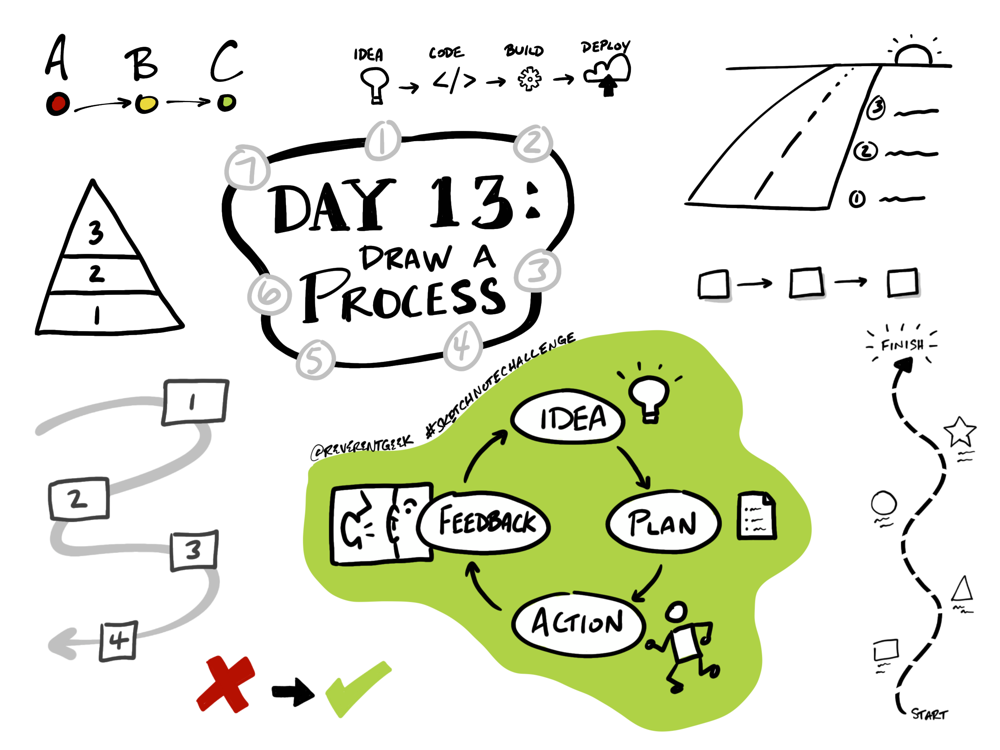 A B C
IDEA CODE BUILD DEPLOY
</>
1
2
3
4
5
6
7
DAY 13:
DRAW A
PROCESS
3
2
1
3
2
1
1
2
3
4
@REVERENTGEEK #SKETCHNOTECHALLENGE
IDEA
PLAN
ACTION
FEEDBACK
FINISH
START